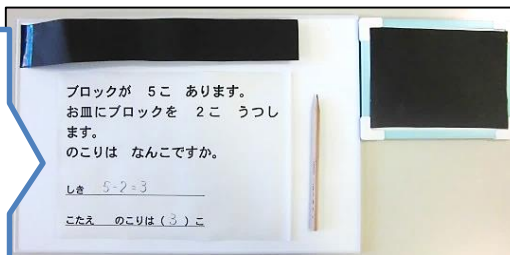 ブロックが 5こ あります。
お皿にブロックを 2こ うつし
ます。
のこりは なんこですか。
しき 5-2=3
こたえ のこりは(3)こ